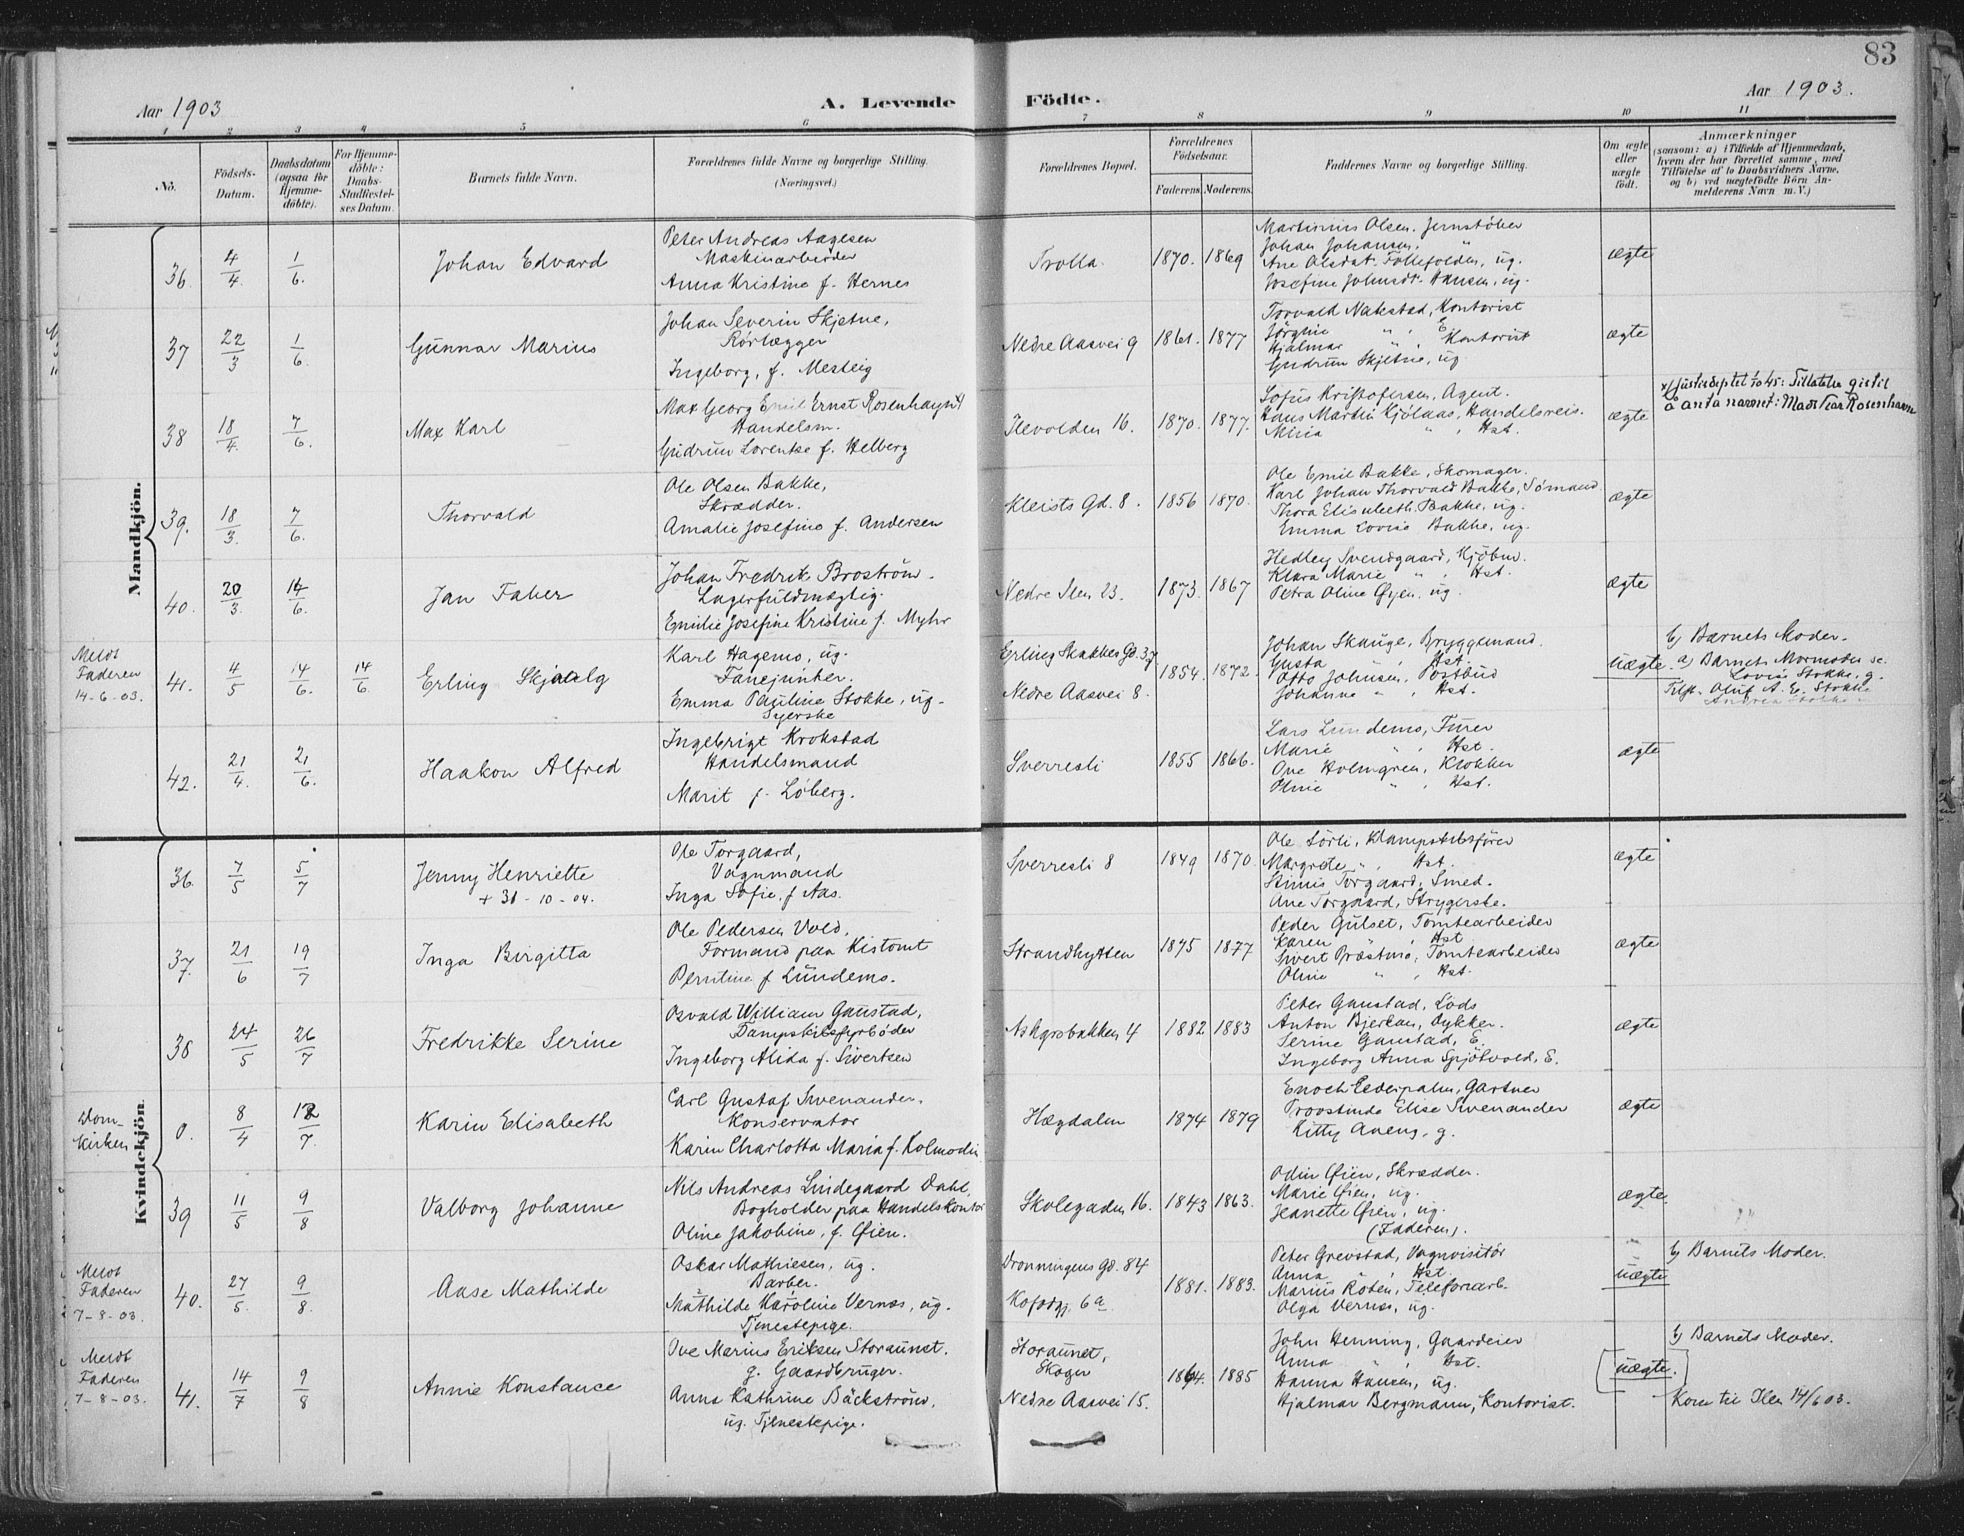 83
Aar 1903
A. Levende Födte.
Aar 1903.
1 2 3 4 5 6 7 8 9 10 11
No.
Födsels-
Datum.
Daabsdatum
(ogsaa for
Hjemme-
döbte).
For Hjemme-
döbte:
Daabs-
Stadfæstel-
ses Datum.
Barnets fulde Navn.
Forældrenes fulde Navne og borgerlige Stilling.
(Næringsvei.)
Forældrenes Bopæl.
Forældrenes
Födselsaar.
Faderens.
Moderens.
Faddernes Navne og borgerlige Stilling.
Om ægte
eller
uægte
födt.
Anmærkninger
(saasom: a) i Tilfælde af Hjemmedaab,
hvem der har forrettet samme, med
Tilföielse af to Daabsvidners Navne,
og b) ved uægtefödte Börn An-
melderens Navn m. V.)
Mandkjön.
36 4/4 1/6. Johan Edvard
Peter Andreas Aagesen
Maskinarbeider
Anna Kristine f. Hernes
Trolla. 1870. 1869
Martinius Olsen, Jernstöber
Johan Johansen, "
Ane Olsdat. Follefolden, ug.
Josefine Johnsdt. Hansen, ug.
ægte
37 22/3 1/6 Gunnar Marius
Johan Severin Skjetne,
Rörlægger
Ingeborg, f. Mesteig
Nedre Aasvei 9 1861. 1877
Torvald Nakstad, Kontorist
Jörgine " , E
Hjalmar " , Kontorist
Gudrun Skjetne, ug.
ægte
38 18/4 7/6. Max Karl
Max Georg Emil Ernst Rosenhayn x)
Handelsm.
Gudrun Lorentse f. Helberg
Ilevolden 16. 1870. 1877.
Sofus Kristofersen, Agent.
Hans Martin Kjölaas, Handelsreis.
Miria " , Hst.
ægte
å anta navnet:
39. 18/3. 7/6. Thorvald
Ole Olsen Bakke,
Skrædder.
Amalie Josefine f. Andersen
Kleists Gd. 8. 1856 1870.
Ole Emil Bakke, Skomager.
Karl Johan Thorvald Bakke, Sömand
Thora Elisabeth Bakke, ug.
Emma Lovise Bakke, ug.
ægte
40. 20/3. 14/6. Jan Faber
Johan Fredrik Broström.
Lagerfuldmægtig.
Emilie Josefine Kristine f. Myhr
Nedre Ilen 23. 1873. 1867
Hedley Svendgaard, Kjöbm.
Klara Marie " , Hst.
Petra Oline Öyen, ug.
ægte
Meldt
Faderen
14-6-03.
41. 4/5 14/6. 14/6 Erling Skjaalg
Karl Hagemo, ug.
Fanejunker.
Emma Pauline Stokke, ug.
Syerske
Erling Skakkes Gd. 37
Nedre Aasvei 8.
1854. 1872.
Johan Skauge, Bryggemand.
Gusta " , Hst.
Otto Johnsen, Postbud
Johanne " , Hst.
uægte
b) Barnets Moder.
a) Barnets Mormoder
Lovise Stokke, g.
Oluf A. E. Stokke
42. 21/4. 21/6. Haakon Alfred
Ingebrigt Krokstad
Handelsmand
Marit f. Löberg.
Sverresli 1855 1866.
Lars Lundemo, Furer
Marie " , Hst.
Ove Holmgren, Klokker
Oline " , Hst.
ægte
Kvindekjön.
36. 7/5 5/7 Jenny Henriette
+ 31-10-04.
Ole Torgaard,
Vognmand
Inga Sofie, f Aas.
Sverresli 8 1849 1870.
Ole Sörli, Dampskibsförer
Margrete " , Hst.
Torgaard, Smed.
Ane Torgaard, Strygerske.
ægte
37. 21/6 19/7 Inga Birgitta
Ole Pedersen Vold,
Formand paa Kistomt
Perntine f Lundemo.
Strandhytten 1875 1877
Peder Gulset, Tomtearbeider
Karen " , Hst
Sivert Præstmo, Tomtearbeider
Oline " , Hst.
ægte
38 24/5 26/7 Fredrikke Serine
Osvald William Ganstad,
Dampskibsfyrböder
Ingeborg Alida f. Sivertsen
4 1882 1883
Peter Ganstad, Lods
Anton Bjerkan, Dykker.
Serine Ganstad, E.
Ingeborg Anna Spjötvold, E.
ægte
Dom-
kirken
0. 8/4 12/7. Karin Elisabeth
Carl Gustaf Swenander,
Konservator
Karin Charlotta Maria f. Kolmodin
Hægdalen 1874 1879
Enoch Cederpalm, Gartner
Elise Swenander
Kitty g.
ægte
39 11/5 9/8 Valborg Johanne
Nils Andreas Lindegaard Dahl,
Bogholder paa Handelskontor
Oline Jakobine, f. Öien.
Skolegaden 16. 1843 1863.
Odin Öien, Skrædder.
Marie Öien, ug.
Jeanette Öien, ug.
(Faderen).
ægte
Meldt
Faderen
7-8-03.
40. 27/5. 9/8. Aase Mathilde
Oskar Mathiesen, ug.
Barber.
Mathilde Karoline Vernes, ug.
Tjenestepige.
Dronningens Gd. 84
6a
1881. 1883.
Peter Grevstad, Vognvisitör
Anna " , Hst.
Marius Roten, Telefonarb.
Olga Vernes, ug.
uægte
b) Barnets Moder.
Meldt
Faderen
7-8-03.
41. 14/7 9/8 Annie Konstance
Ove Marius Eriksen Storaunet.
g. Gaardbruger.
Anna Kathrine Bäckström,
ug. Tjenestepige.
Storaunet,
Skogn
Nedre Aasvei 15.
1864. 1885
John Henning, Gaardeier
Anna " , Hst.
Hanna Hansen, ug.
Hjalmar Bergmann, Kontorist.
uægte.
b) Barnets Moder.
Kom til Ilen 14/6 03.